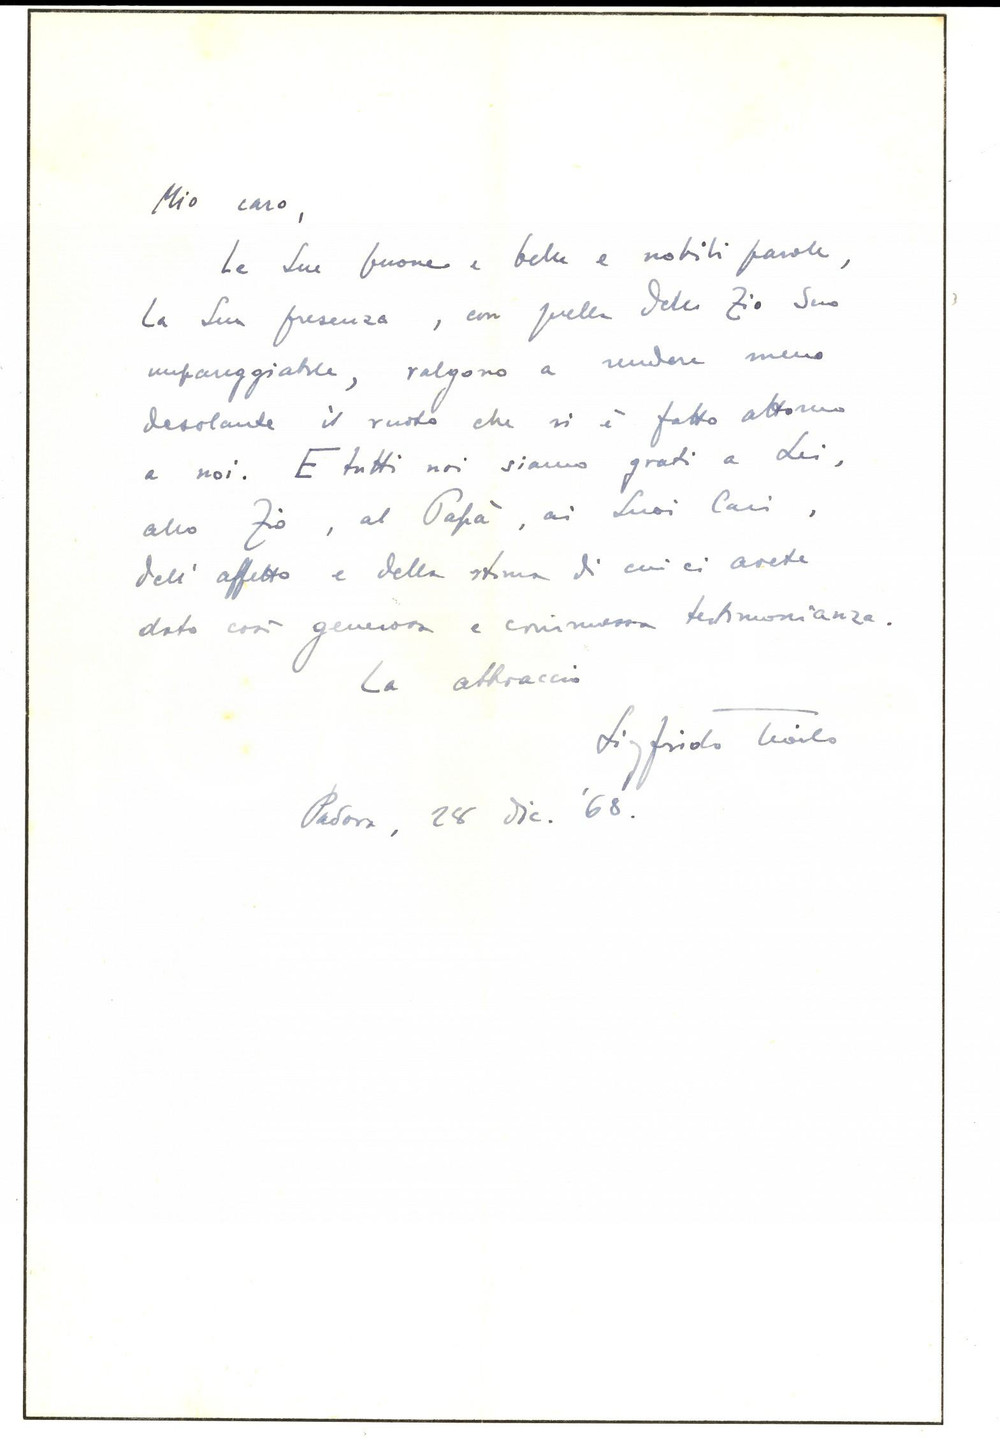 Mio caro,
Le Sue buone e belle e nobili parole,
La Sua presenza, con quella dello Zio Suo
impareggiabile, valgono a rendere meno
desolante il vuoto che si è fatto attorno
a noi. E tutti noi siamo grati a Lei,
allo Zio, al Papà, ai Suoi Cari,
dell'affetto e della stima di cui ci avete
dato così generosa e commossa testimonianza.
La abbraccio
Sigfrido Troilo
Padova, 28 dic. '68.